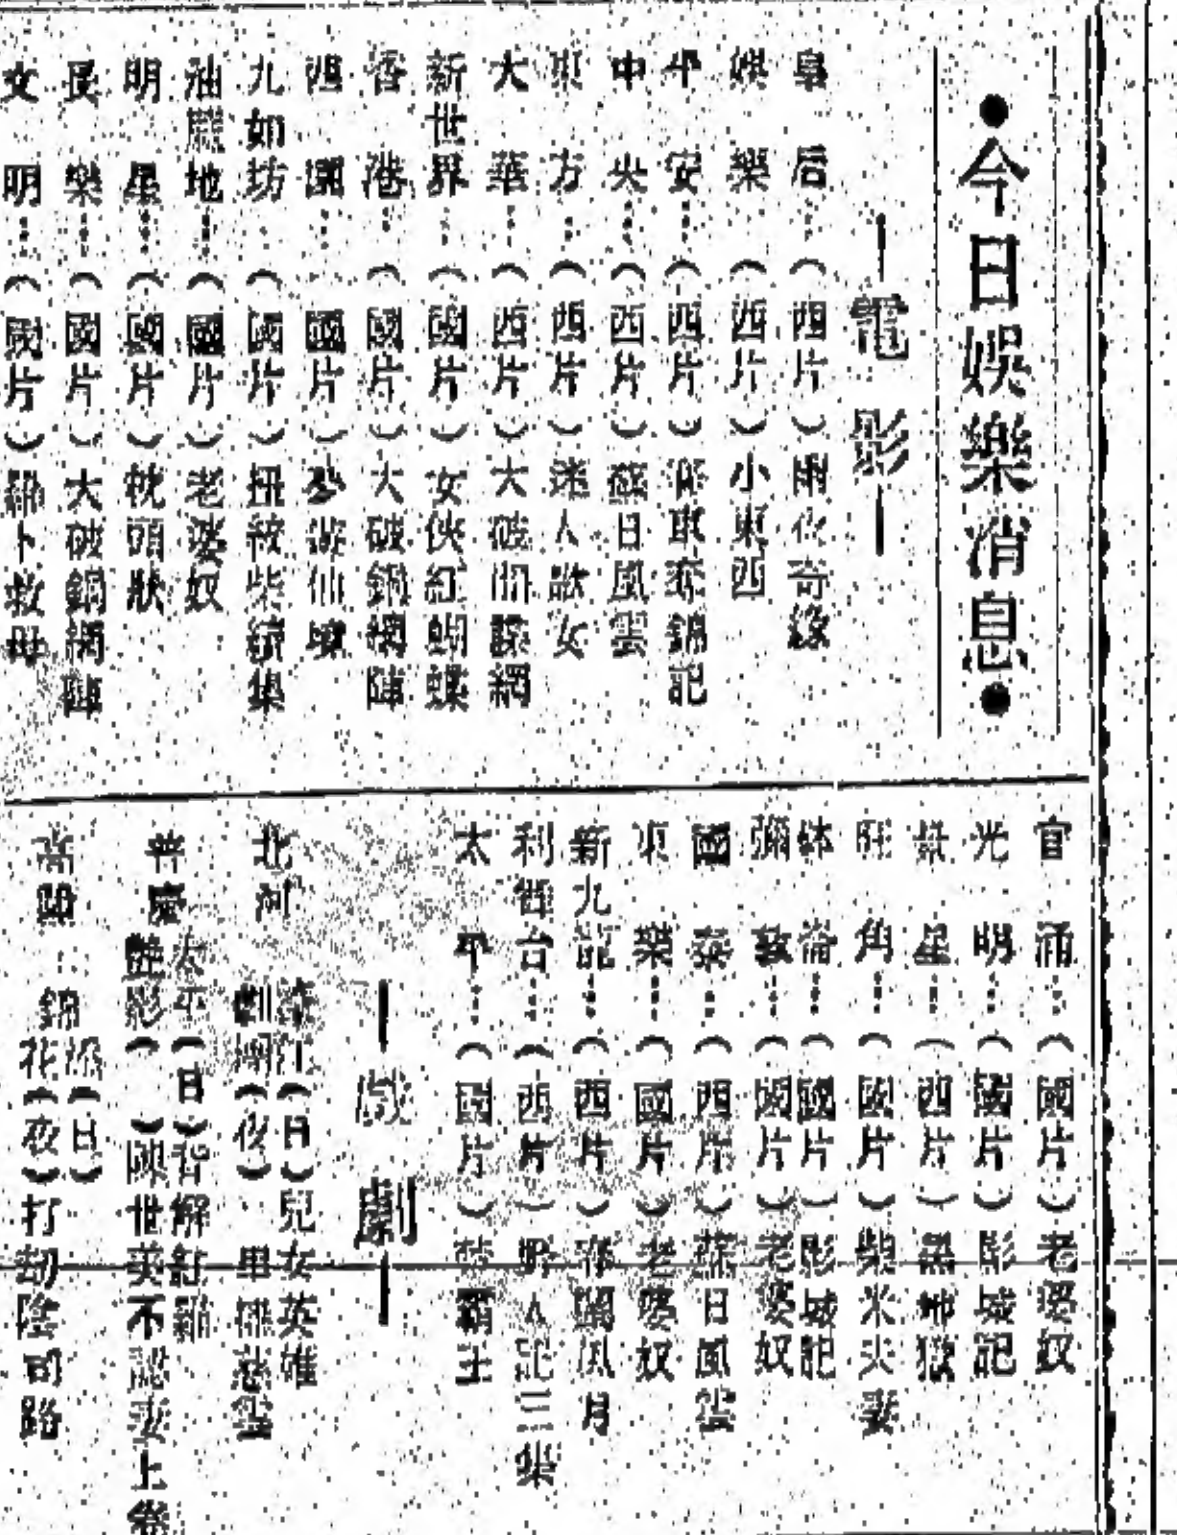 ●今日娛樂消息●
—電影—
皇后⋯(西片)雨夜奇緣
娛樂⋯(西片)小東西
平安⋯(西片)錦記
中央⋯(西片)蘇日風雲
東方⋯(西片)迷人歌女
大華⋯(西片)大破間諜網
新世界⋯(國片)女俠紅蝴蝶
香港⋯(國片)大破銅網陣
西園⋯(國片)夢遊仙境
九如坊⋯(國片)扭紋柴續集
油麻地⋯(國片)老婆奴
明星⋯(國片)枕頭狀
長樂⋯(國片)大破銅網陣
文明⋯(國片)卜救母
官涌⋯(國片)老婆奴
光明⋯(國片)影城記
景星⋯(西片)黑地獄
旺角⋯(國片)柴米夫妻
砵崙⋯(國片)影城記
彌敦⋯(國片)老婆奴
國泰⋯(西片)蘇日風雲
東樂⋯(國片)老婆奴
新九龍⋯(西片)春閨風月
利舞台⋯(西片)野人記三集
太平⋯(國片)霸王
—戲劇—
北河 劇團(日)兒女英雄
(夜)
普慶 太平艷影(日)背解紅羅
(夜)陳世英不認妻上卷
高陞⋯錦花(日)
(夜)打劫陰司路